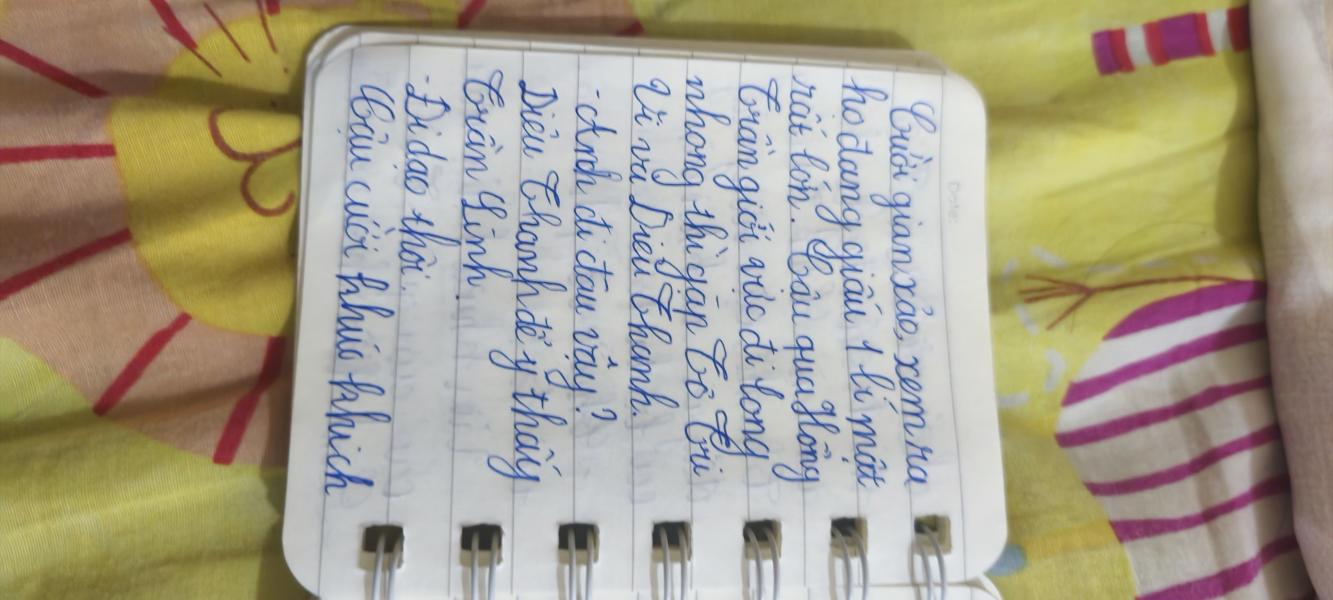 Date:
Cười gian xảo, xem ra
họ đang giấu 1 bí mật
rất lớn. Cậu qua Hồng
Trần giới vực đi long
nhong thì gặp Tô Tri
Vi và Diêu Thanh.
- Anh đi đâu vậy?
Diêu Thanh để ý thấy
Trần Linh.
- Đi dạo thôi.
Cậu cười khúc khích